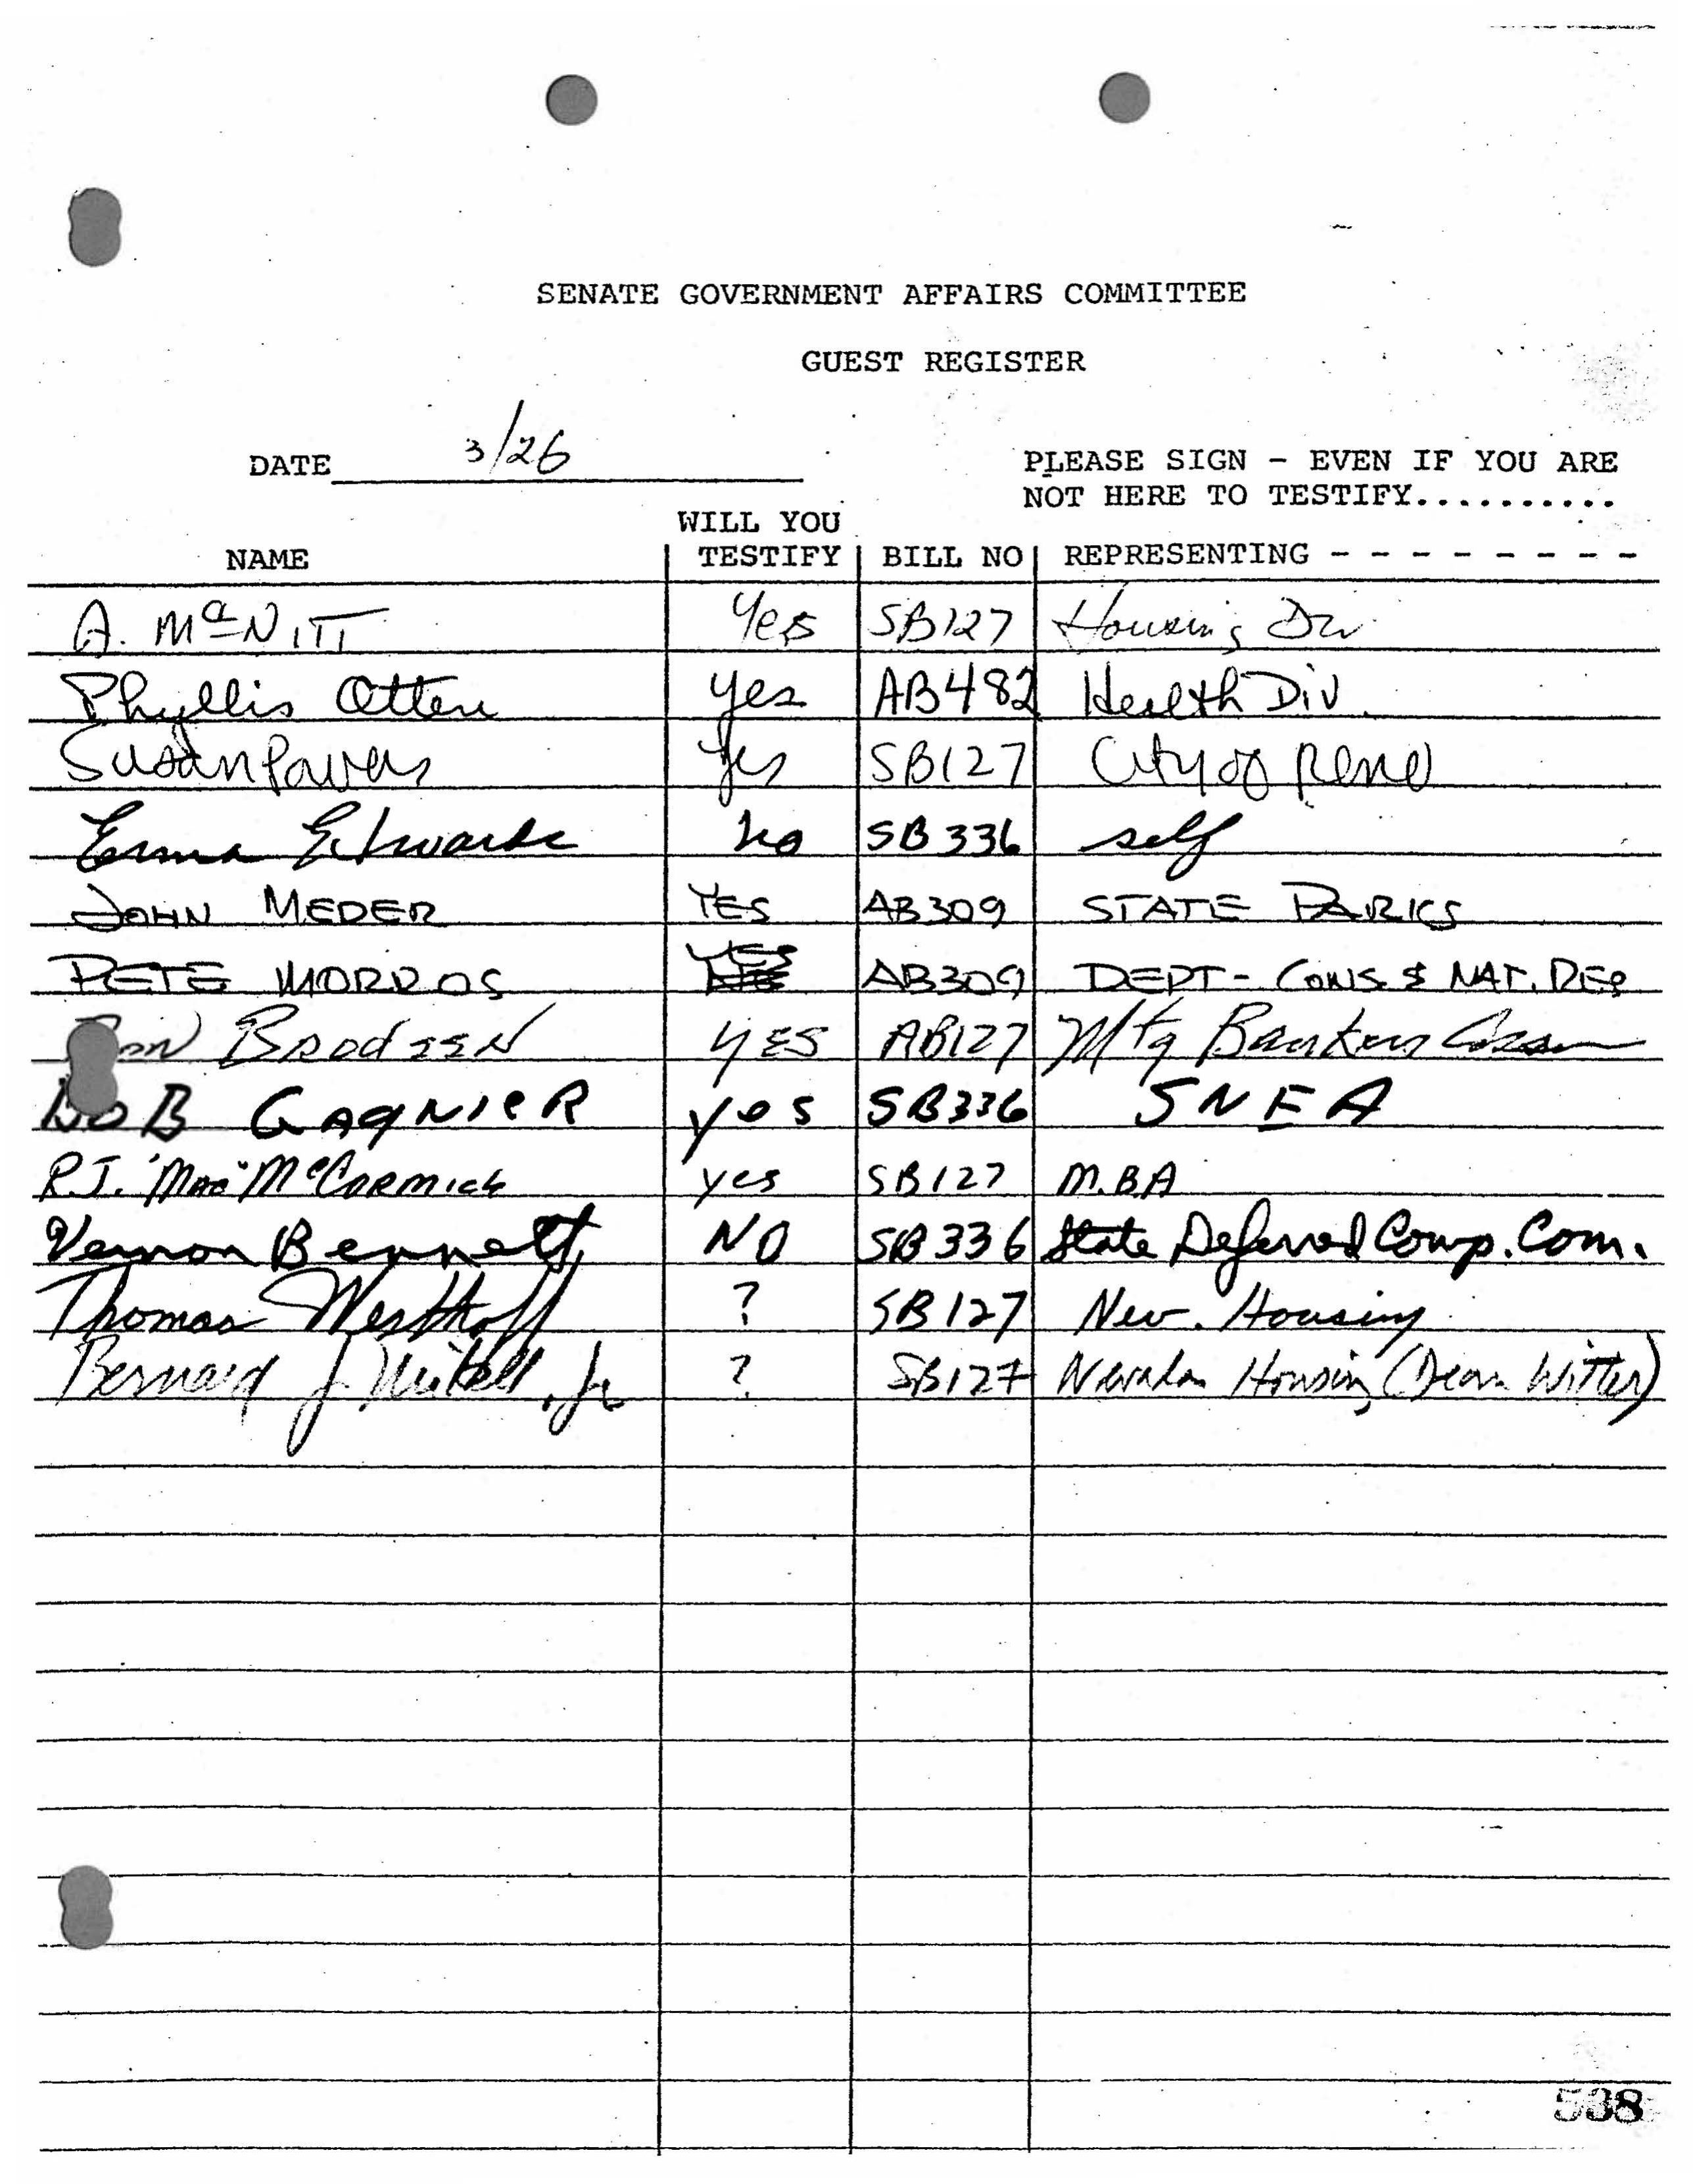 SENATE GOVERNMENT AFFAIRS COMMITTEE
GUEST REGISTER
DATE 3/26
PLEASE SIGN - EVEN IF YOU ARE
NOT HERE TO TESTIFY..........
NAME WILL YOU TESTIFY BILL NO REPRESENTING - - - - - - - -
A. McNITT Yes SB127 Housing Div
Phyllis Otten yes AB482 Health Div.
Susan Powers Yes SB127 City of Reno
Erma Edwards no SB336 self
JOHN MEDER YES AB309 STATE PARKS
PETE MORROS YES AB309 DEPT - CONS. & NAT. RES
Brodsen YES AB127 Mtg Bankers Assn
BOB GAGNIER yes SB336 SNEA
P.J. "Mac" McCormick yes SB127 M.B.A
Vernon Bennett NO SB336 State Deferred Comp. Com.
Thomas Westhoff ? SB127 Nev. Housing
Bernard J. Mikell, Jr ? SB127 Nevada Housing (Dean Witter)
538